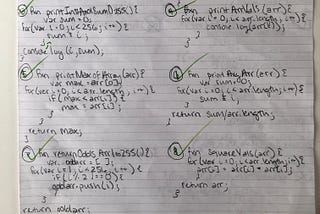 fxn printIntAndSum0to255(){
var sum=0;
for(var i=0; i<256; i++){
sum += i;
}
console.log(i, sum);
}
fxn printArrVals(arr){
for(var i=0; i<arr.length; i++){
console.log(arr[i]);
}
}
fxn printMaxofArray(arr){
var max=arr[0];
for(var i=0; i<arr.length; i++){
if(max<arr[i]){
max = arr[i];
}
}
return max;
}
fxn printAvgArr(arr){
var sum=0;
for(var i=0; i<arr.length; i++){
sum +=
}
return sum/arr.length;
}
fxn returnOddsArr1to255(){
var oddarr = [];
for(var i=1; i<256; i++){
if(i%2!==0){
oddarr.push(i);
}
}
return oddarr;
fxn squareVals(arr){
for(var i=0; i<arr.length; i++){
arr[i] = arr[i]*arr[i];
}
return arr;
}